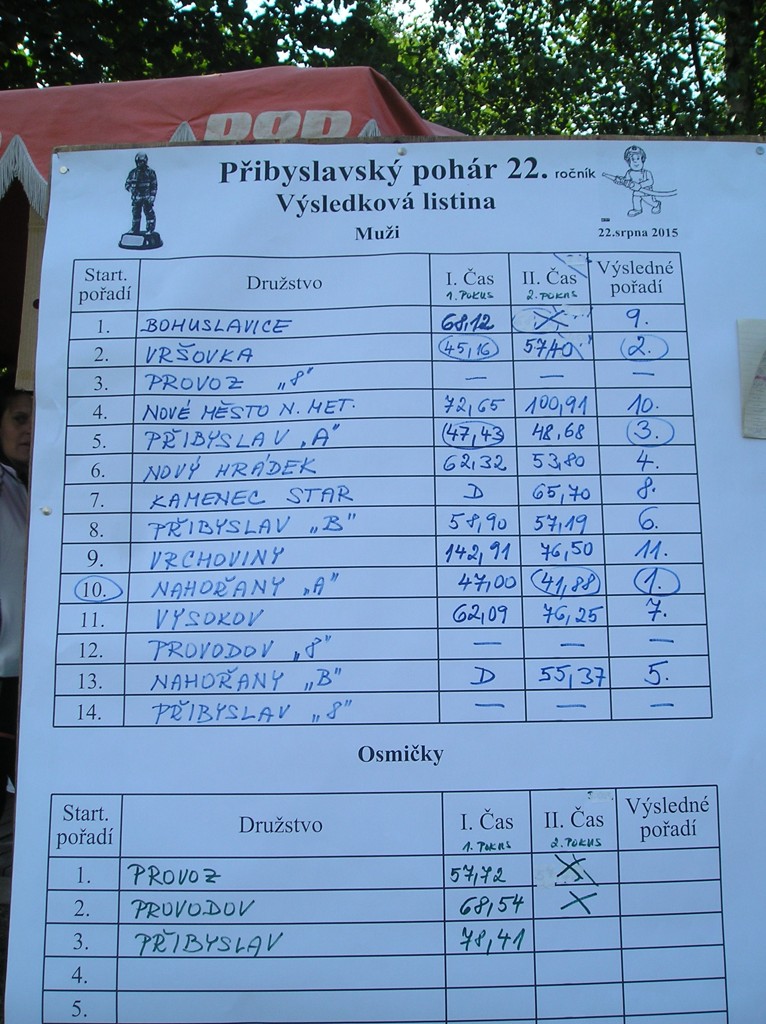 POP
Přibyslavský pohár 22. ročník
Výsledková listina
Muži
22.srpna 2015
Start. pořadí Družstvo I. Čas 1. POKUS II. Čas 2. POKUS Výsledné pořadí
1. BOHUSLAVICE 68,12 X 9.
2. VRŠOVKA 45,16 57,40 2.
3. PROVOZ „8" — — —
4. NOVÉ MĚSTO N. MET. 72,65 100,91 10.
5. PŘIBYSLAV „A" 47,43 48,68 3.
6. NOVÝ HRÁDEK 62,32 53,80 4.
7. KAMENEC STAR D 65,70 8.
8. PŘIBYSLAV „B" 58,90 57,19 6.
9. VRCHOVINY 142,91 76,50 11.
10. NAHOŘANY „A" 47,00 41,88 1.
11. VYSOKOV 62,09 76,25 7.
12. PROVODOV „8" — — —
13. NAHOŘANY „B" D 55,37 5.
14. PŘIBYSLAV „8" — — —
Osmičky
Start. pořadí Družstvo I. Čas 1. POKUS II. Čas 2. POKUS Výsledné pořadí
1. PROVOZ 57,72 X
2. PROVODOV 68,54 X
3. PŘIBYSLAV 78,41
4.
5.